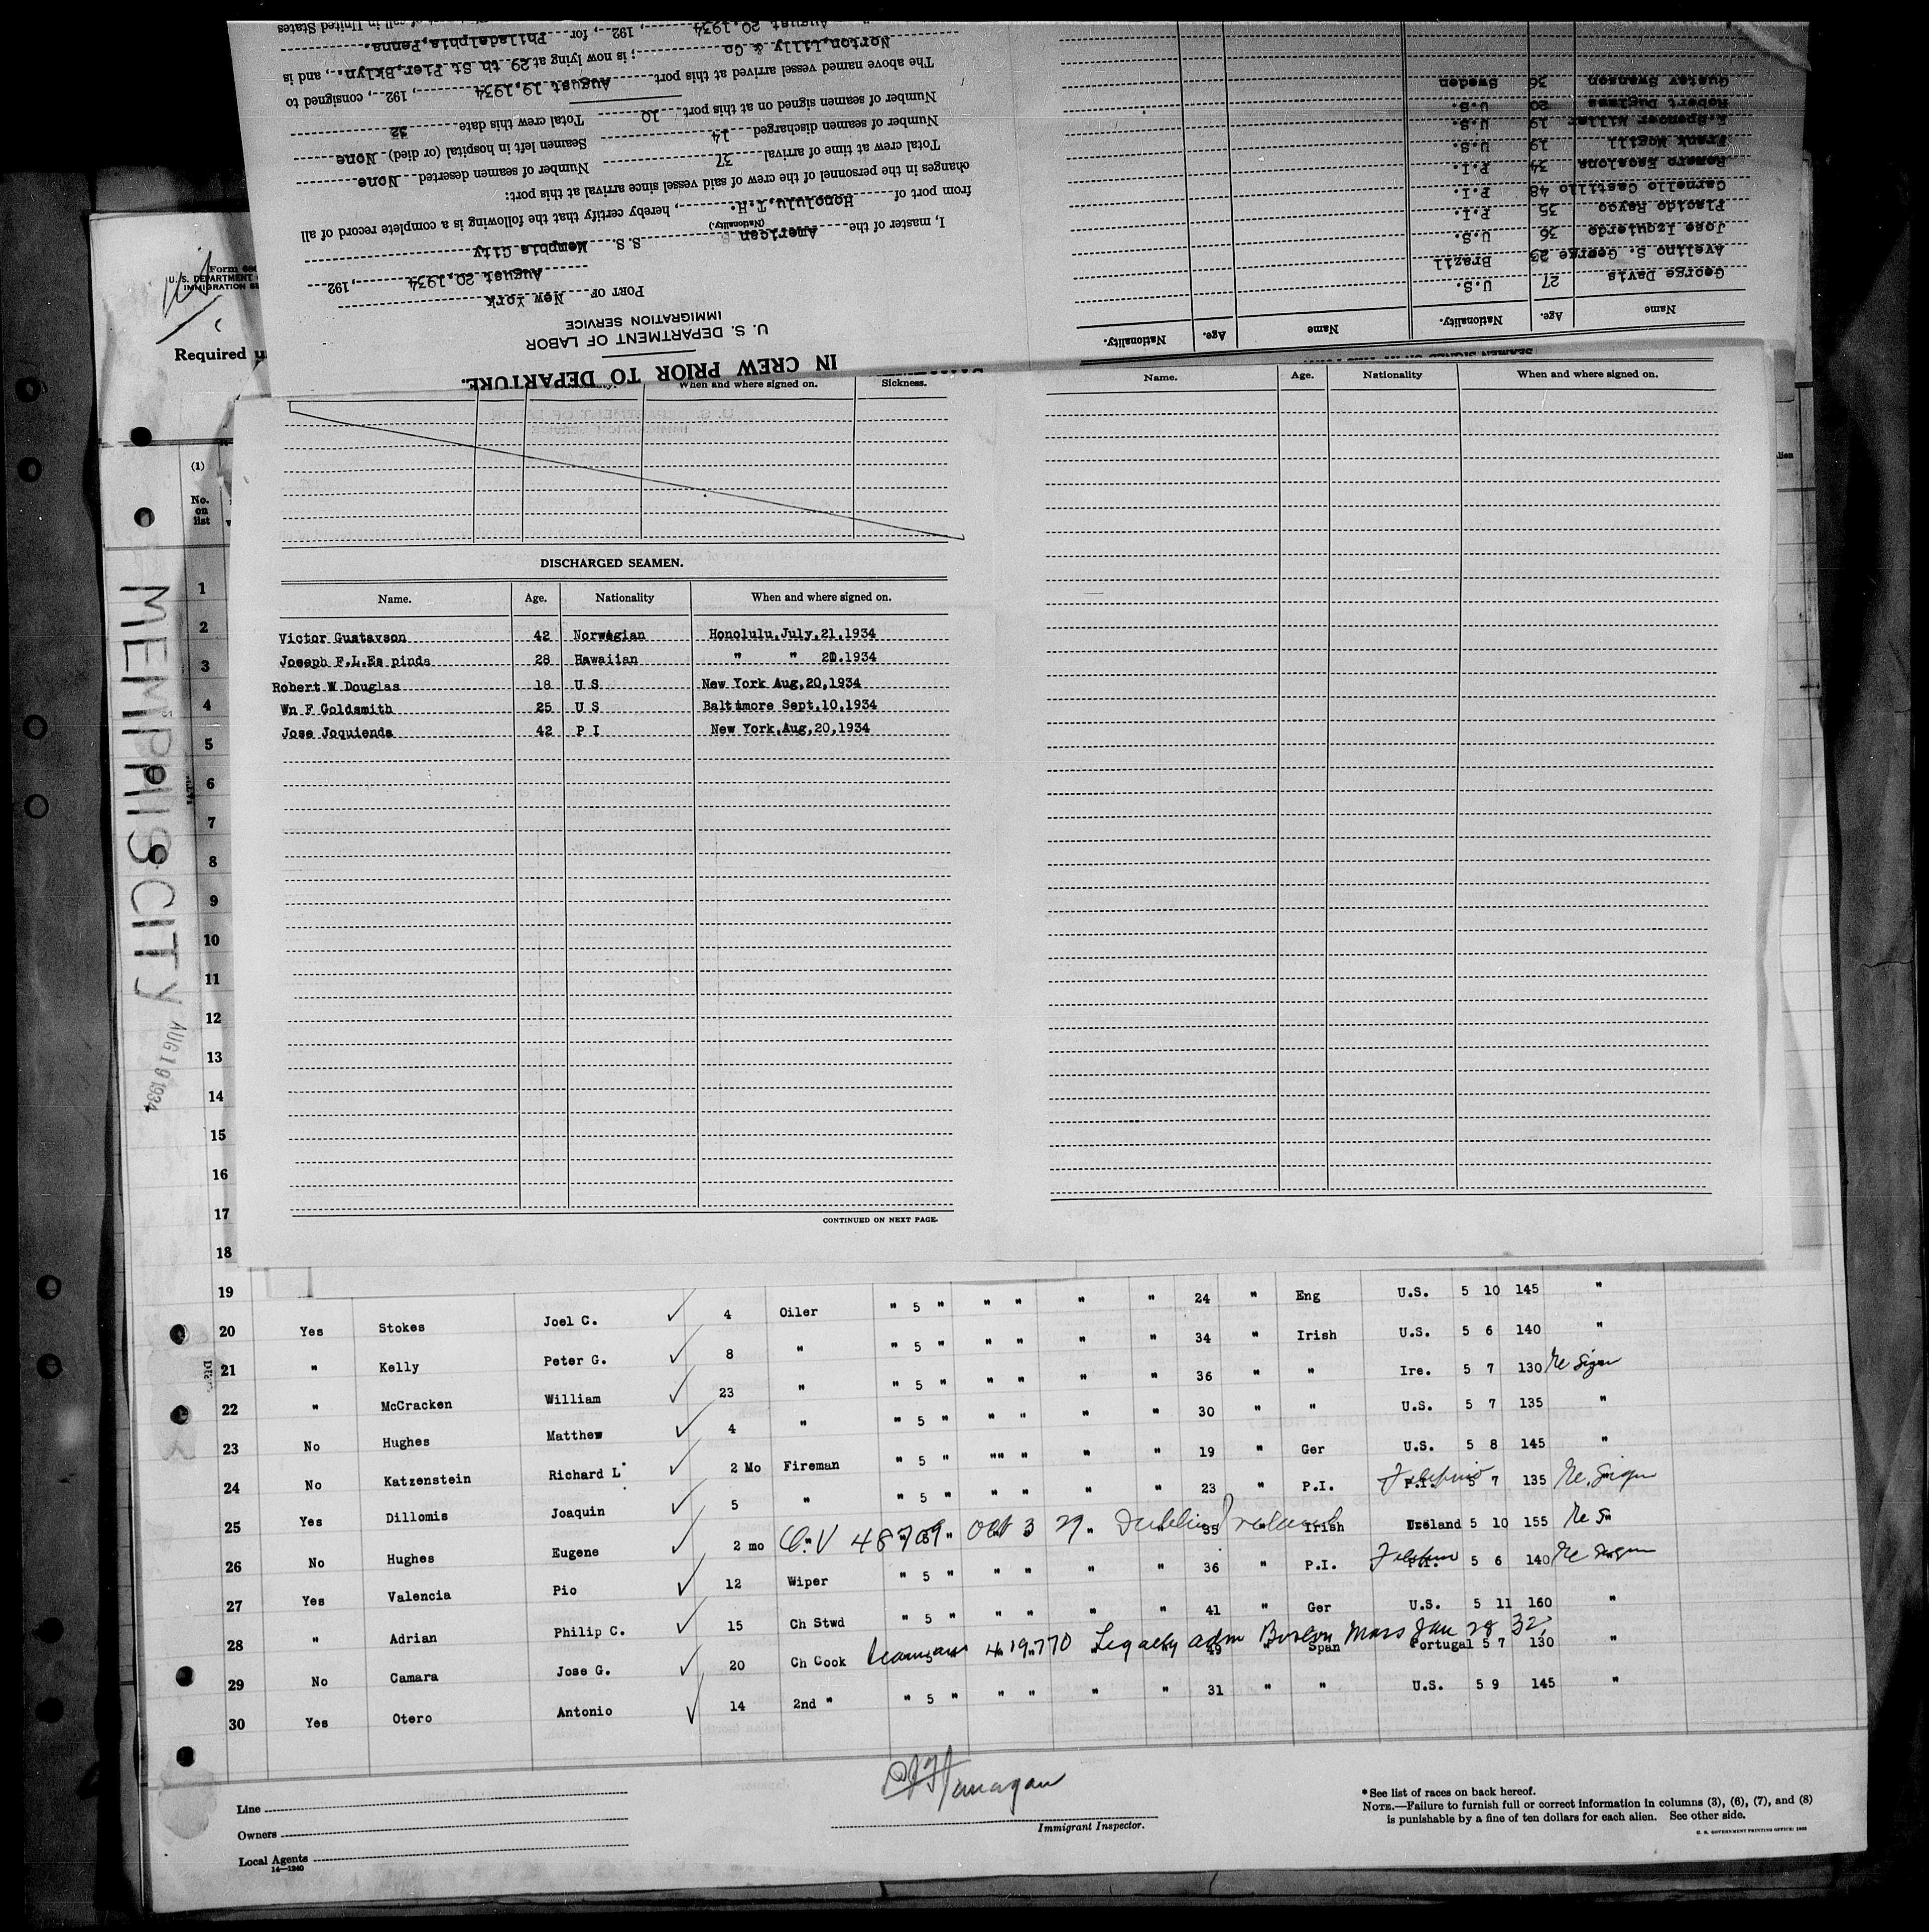 IN CREW PRIOR TO DEPARTURE.
U. S. DEPARTMENT OF LABOR
IMMIGRATION SERVICE
PORT OF New York
August 20,1934, 192
I, master of the American S.S. Memphis City
(Nationality.)
from port of Honolulu,T.H., hereby certify that the following is a complete record of all
changes in the personnel of the crew of said vessel since arrival at this port:
Total crew at time of arrival 37 Number of seamen deserted None
Number of seamen discharged 14 Seamen left in hospital (or died) None
Number of seamen signed on at this port 10 Total crew this date 32
The above named vessel arrived at this port August 19,1934, 192, consigned to
Norton,Lilly & Co; is now lying at 29 th St Pier,Bklyn., and is
August 20,1934, 192, for Philadelphia,Penna.
of call in United States
Name Age. Nationality. Name Age. Nationality.
George Davis 27 U.S.
Avelino S. George 23 Brazil
Jose Izquierdo 36 U.S.
Placido Rayco 35 P.I.
Carnello Castillo 48 P.I.
Romero Escalona 34 P.I.
Frank McGill 19 U.S.
F.Spencer Willar 19 U.S.
Robert Duglass 20 U.S.
Gustav Swanson 36 Sweden
Form 680
U. S. DEPARTMENT
IMMIGRATION SE
Required u
(1)
No. on list
MEMPHIS CITY
AUG 19 1934
When and where signed on. Sickness.
Name. Age. Nationality When and where signed on.
DISCHARGED SEAMEN.
Name. Age. Nationality When and where signed on.
Victor Gustavson 42 Norwegian Honolulu,July,21,1934
Joseph F.L.Es pinda 28 Hawaiian " " 20.1934
Robert W Douglas 18 U S New York Aug,20,1934
Wn F Goldsmith 25 U S Baltimore Sept.10,1934
Jose Joquienda 42 P I New York,Aug,20,1934
CONTINUED ON NEXT PAGE.
1
2
3
4
5
6
7
8
9
10
11
12
13
14
15
16
17
18
19
20 Yes Stokes Joel C. 4 Oiler " 5 " " " " " 24 " Eng U.S. 5 10 145 "
21 " Kelly Peter G. 8 " " 5 " " " " " 34 " Irish U.S. 5 6 140 "
22 " McCracken William 23 " " 5 " " " " " 36 " " Ire. 5 7 130 Re Sign
23 No Hughes Matthew 4 " " 5 " " " " " 30 " " U.S. 5 7 135 "
24 No Katzenstein Richard L 2 Mo Fireman " 5 " "" " " " 19 " Ger U.S. 5 8 145 "
25 Yes Dillomis Joaquin 5 " " 5 " " " " " 23 " P.I. P.I. Filipino 5 7 135 Re Sign
26 No Hughes Eugene 2 mo C.V 48709 Oct 3 29 Dublin Ireland 35 Irish Ireland 5 10 155 Re S
27 Yes Valencia Pio 12 Wiper " 5 " " " " " 36 " P.I. 5 6 140 Re Sign
28 " Adrian Philip C. 15 Ch Stwd " 5 " " " " " 41 " Ger U.S. 5 11 160 "
29 No Camara Jose G. 20 Ch Cook 419770 Legally adm Boston Mass Jan 28 32, 49 Span Portugal 5 7 130 "
30 Yes Otero Antonio 14 2nd " " 5 " " " " " 31 " " U.S. 5 9 145 "
Line
Owners
Local Agents
14—1240
Immigrant Inspector.
* See list of races on back hereof.
NOTE.—Failure to furnish full or correct information in columns (3), (6), (7), and (8)
is punishable by a fine of ten dollars for each alien. See other side.